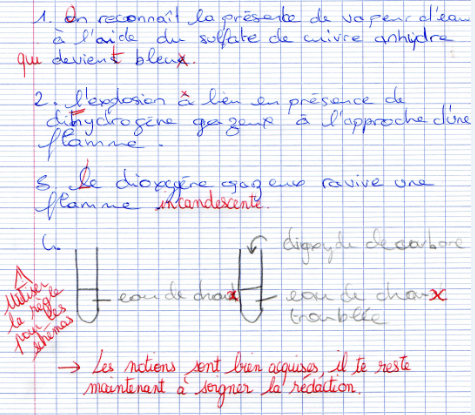 1. On reconnaît la présence de vapeur d'eau
à l'aide du sulfate de cuivre anhydre
qui devient bleux.
2. l'explosion à lieu en présence de
dihydrogène gazeux à l'approche d'une
flamme.
3. Le dioxygène gazeux ravive une
flamme incandescente.
4.
dioxyde de carbone
eau de chaux
eau de chaux
troublée
⚠ Utiliser
la règle
pour les
schémas
→ Les notions sont bien acquises, il te reste
maintenant à soigner la rédaction.